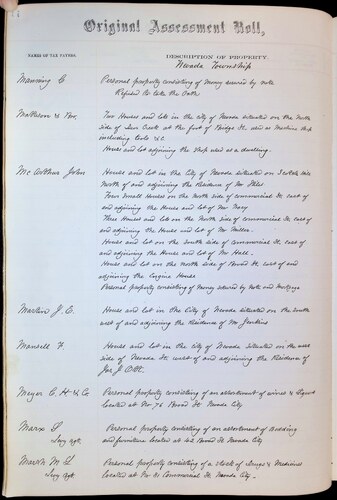 Original Assessment Roll,
NAMES OF TAX PAYERS.
DESCRIPTION OF PROPERTY.
Nevada Township
Manning C
Personal property consisting of Money secured by note
Refused to take the Oath
Matteson &
Two Houses and lots in the City of Nevada situated on the North
side of Deer Creek at the foot of Bridge St. used as Machine shop
including tools &c
House and lot adjoining the shop used as a dwelling.
Mc Arthur John
House and lot in the City of Nevada situated on
North of and adjoining the Residence of Mr
Four Small Houses on the North side of Commercial St. east of
and adjoining the House and lot of Mr
Three Houses and lots on the North side of Commercial St. east of
and adjoining the House and lot of Mr Miller.
House and lot on the South side of Commercial St. east of
and adjoining the House and lot of Mr Hall.
House and lot on the North side of Broad St. east of and
adjoining the Engine House
Personal property consisting of Money secured by note and Mortgage
Martin J. C.
House and lot in the City of Nevada situated on the South
west of and adjoining the Residence of Mr Jenkins
Mansell F.
House and lot in the City of Nevada situated on the west
side of Nevada St. west of and adjoining the Residence of
Jos J. Ott.
Meyer C. H & Co
Personal property consisting of an assortment of wines & Liquors
located at No. 76 Broad St Nevada City
Marx S
Personal property consisting of an assortment of Bedding
and furniture located at 42 Broad St Nevada City
Marsh M L
Personal property consisting of a stock of Drugs & Medicines
located at No Commercial St. Nevada City